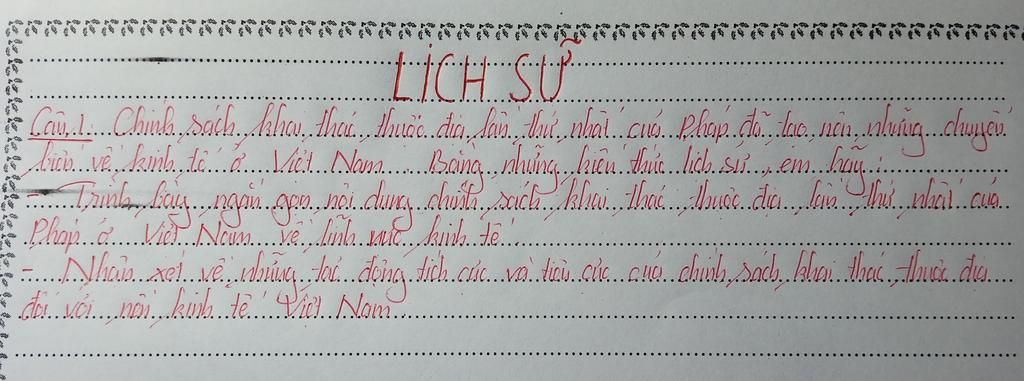 LỊCH SỬ
Câu 1. Chính sách khai thác thuộc địa lần thứ nhất của Pháp đã tạo nên những chuyển
biến về kinh tế ở Việt Nam. Bằng những kiến thức lịch sử, em hãy:
- Trình bày ngắn gọn nội dung chính sách khai thác thuộc địa lần thứ nhất của
Pháp ở Việt Nam về lĩnh vực kinh tế.
- Nhận xét về những tác động tích cực và tiêu cực của chính sách khai thác thuộc địa
đối với nền kinh tế Việt Nam.